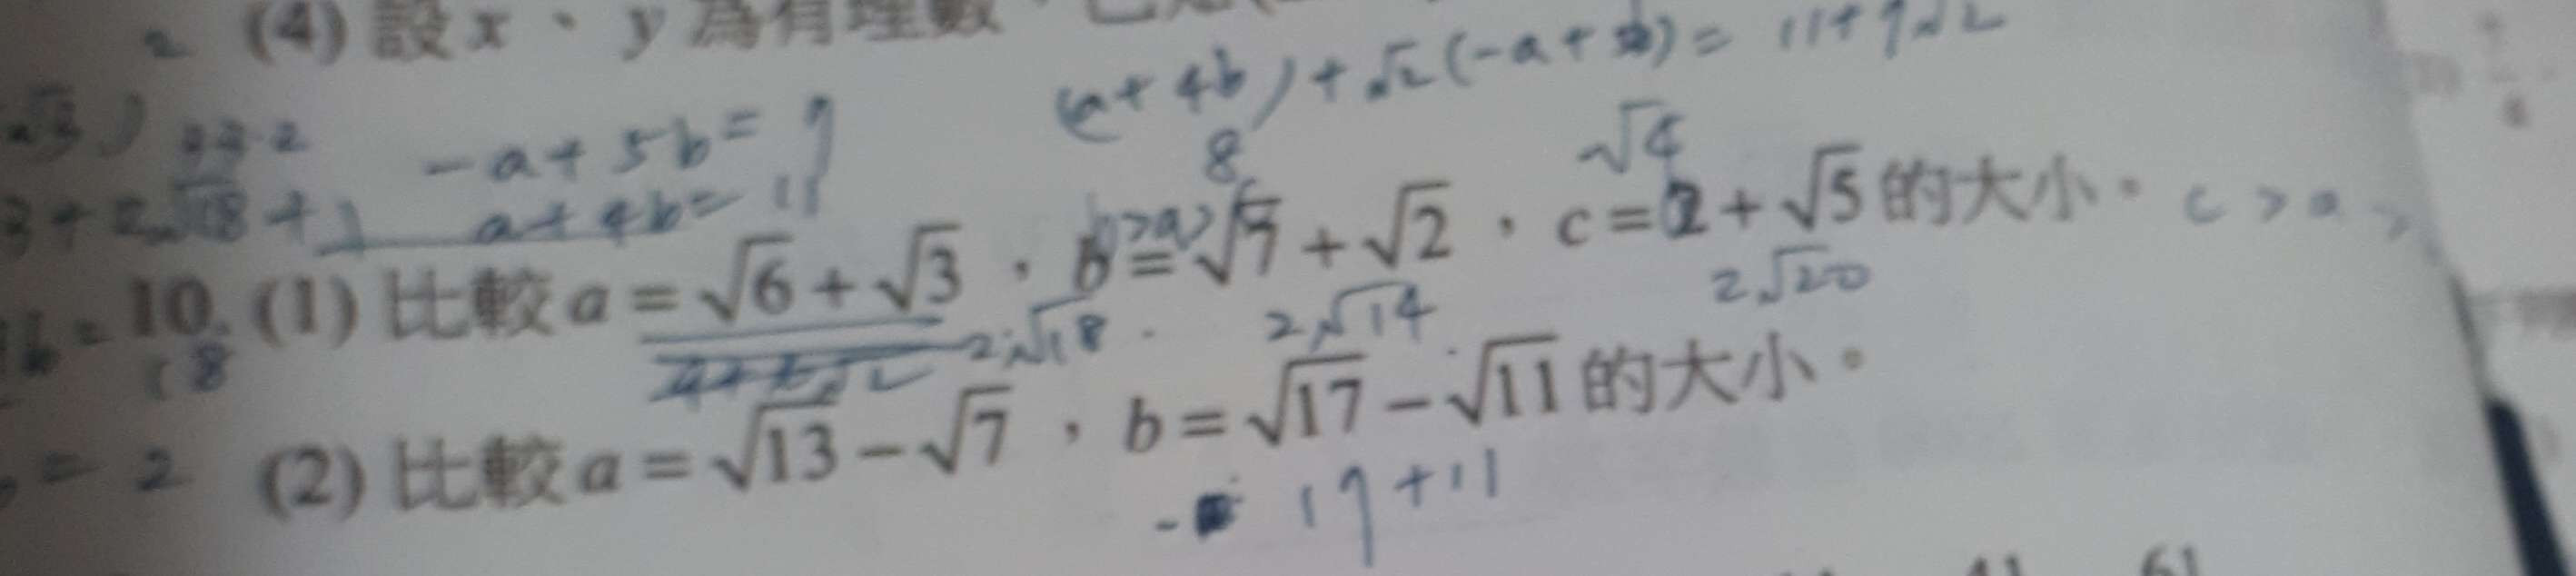 (4) 設 x、y 為有理數
(a + 4b) + √2 (-a + 5b) = 11 + 7√2
-a + 5b = 7
a + 4b = 11
8
√4
3 + 2√18 +
10. (1) 比較 a = √6 + √3，b = √7 + √2，c = 2 + √5 的大小。 c > a >
b > a >
2√18 2√14 2√20
18
= 2 (2) 比較 a = √13 - √7，b = √17 - √11 的大小。
17 + 11